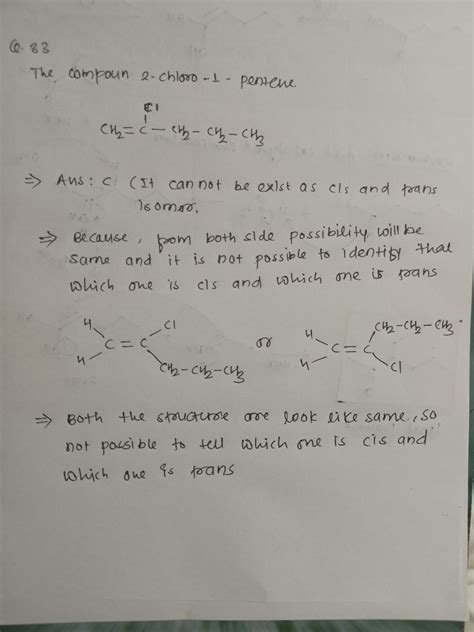 Q.83
The compoun 2-chloro-1-pentene
Cl
CH2=C-CH2-CH2-CH3
⇒ Ans: C (It can not be exist as cis and trans
isomer.
⇒ Because, from both side possibility will be
same and it is not possible to identify that
which one is cis and which one is trans
H Cl H CH2-CH2-CH3
C=C or C=C
H CH2-CH2-CH3 H Cl
⇒ Both the structure are look like same, so
not possible to tell which one is cis and
which one is trans